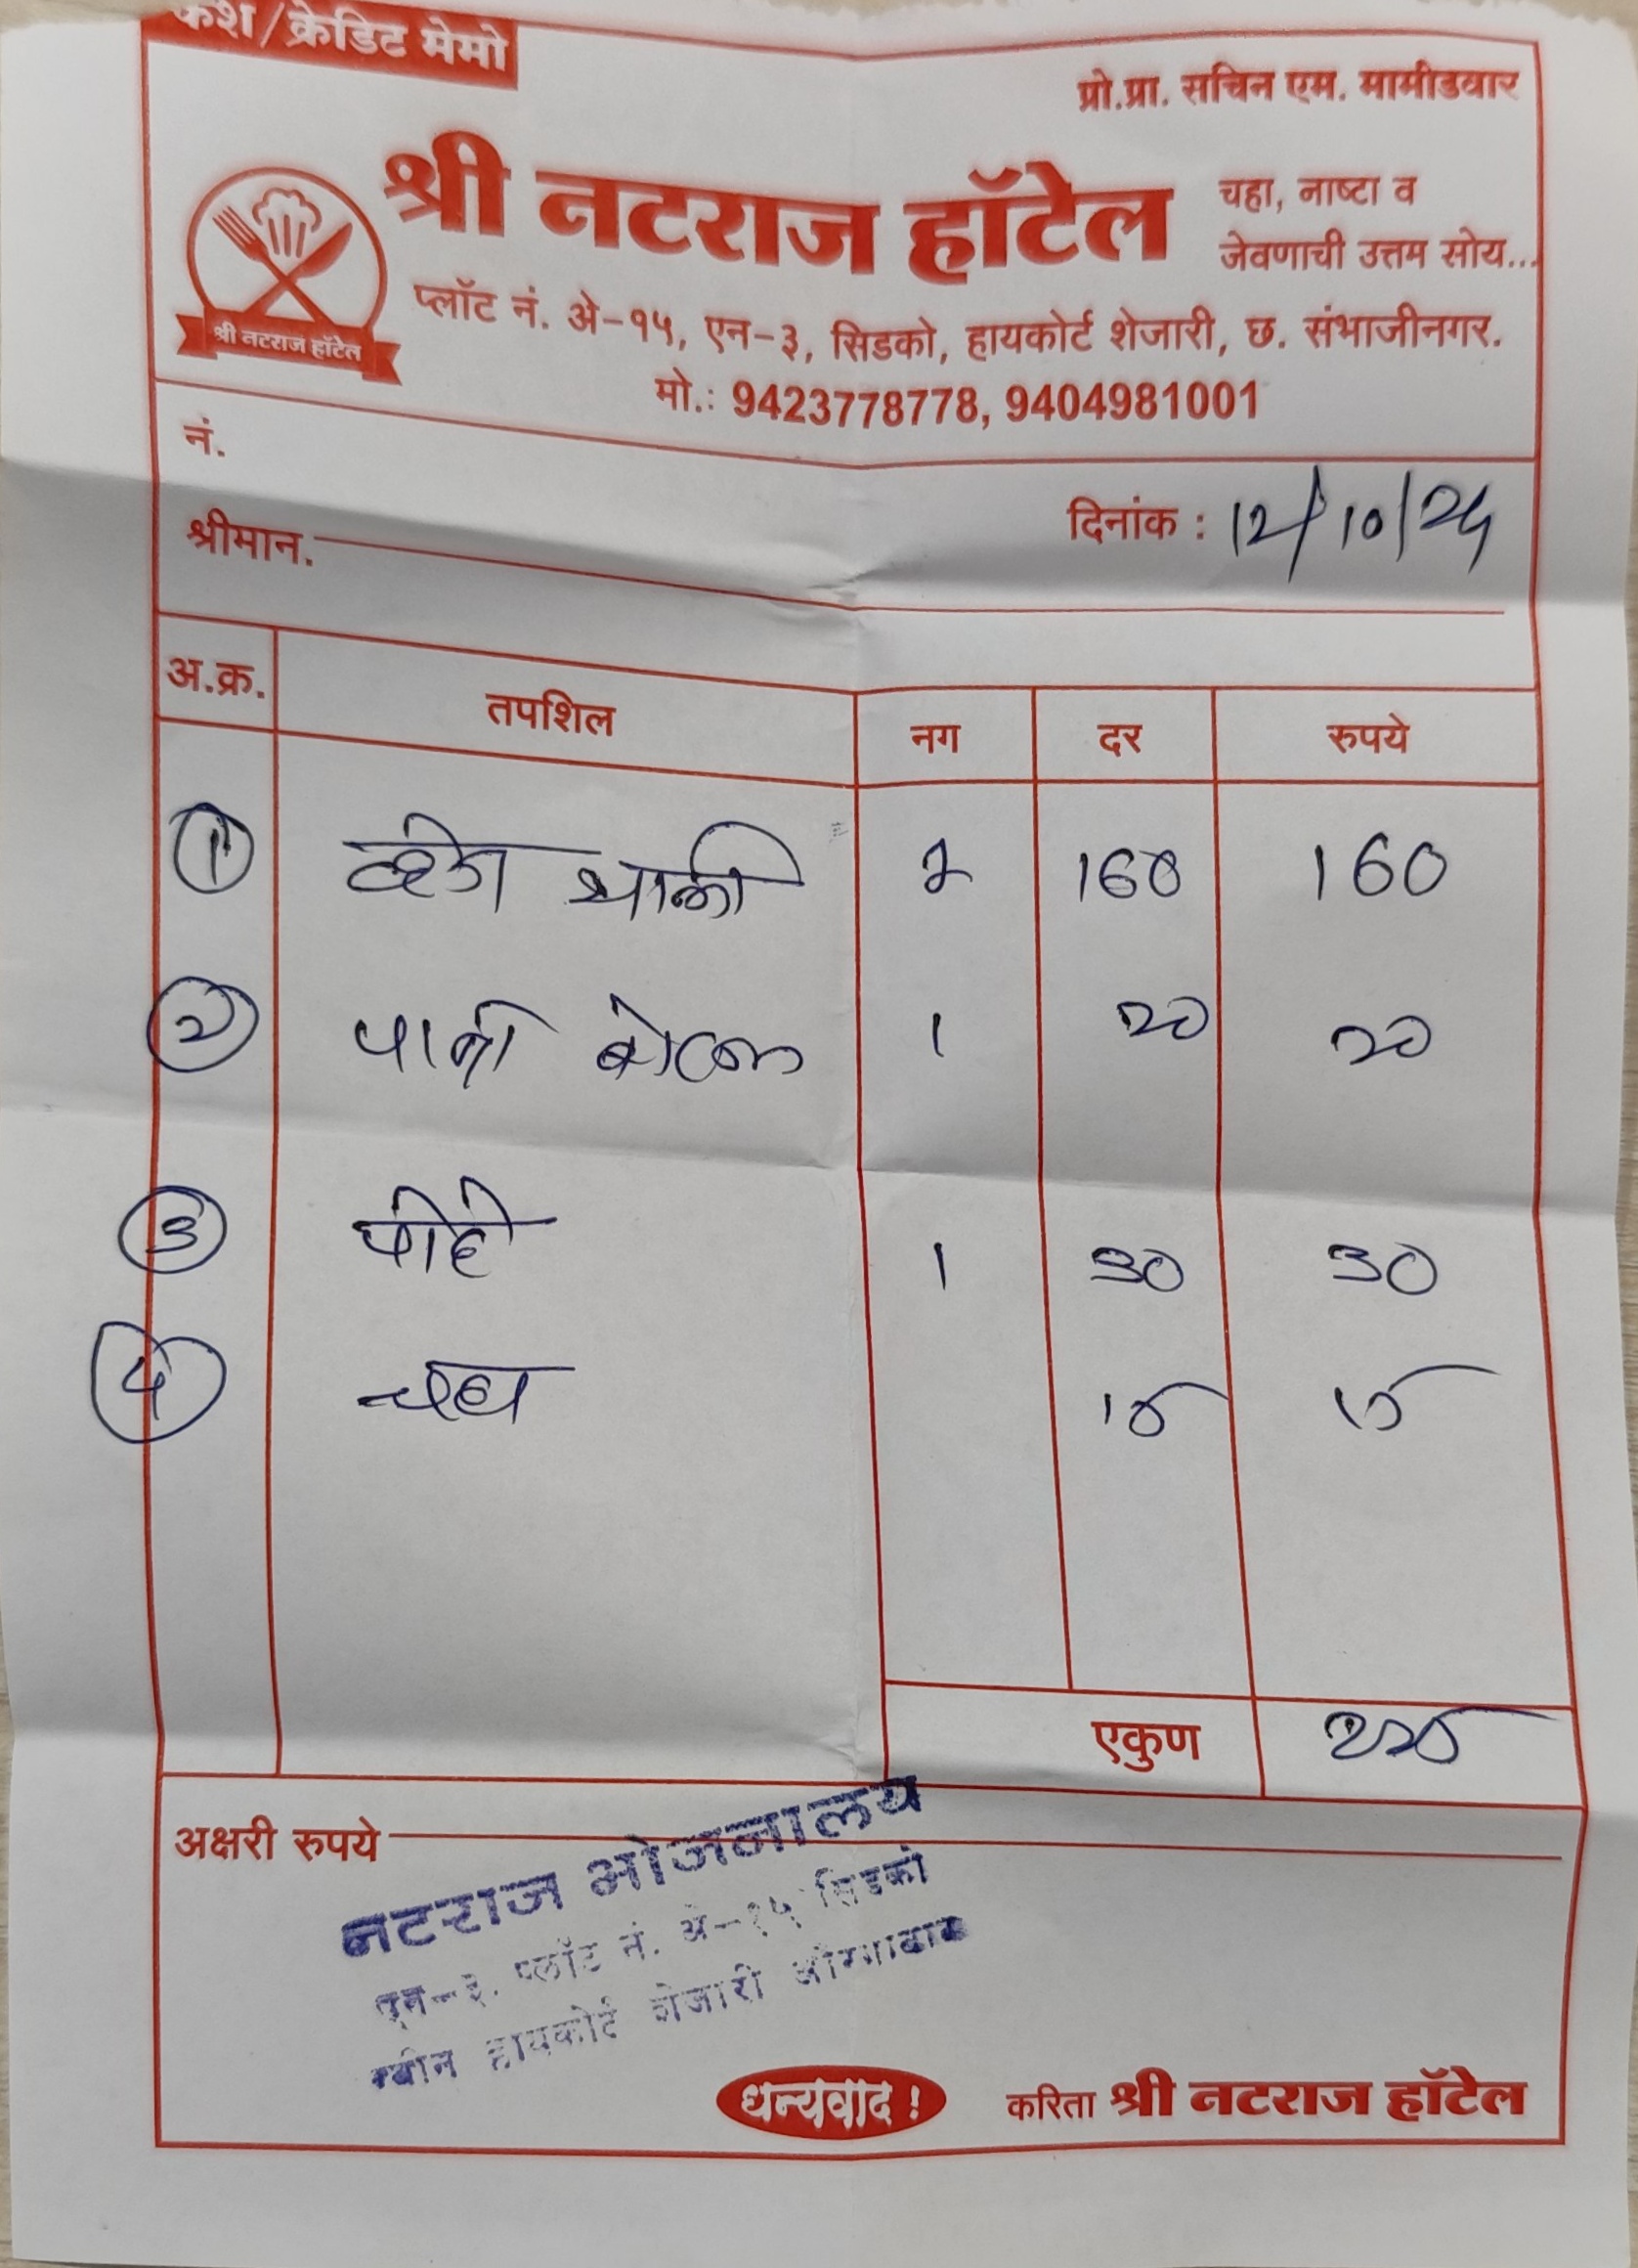 कॅश/क्रेडिट मेमो
प्रो.प्रा. सचिन एम. मामीडवार
श्री नटराज हॉटेल
चहा, नाष्टा व
जेवणाची उत्तम सोय...
श्री नटराज हॉटेल
प्लॉट नं. अे-१५, एन-३, सिडको, हायकोर्ट शेजारी, छ. संभाजीनगर.
मो.: 9423778778, 9404981001
नं.
दिनांक : 12/10/24
श्रीमान.
अ.क्र. तपशिल नग दर रुपये
1 व्हेज थाळी 160 160
2 पाणी बोटल 1 20 20
3 पोहे 1 30 30
4 चहा 15 15
एकुण 225
अक्षरी रुपये
नटराज भोजनालय
एन-३, प्लॉट नं. अे-१५ सिडको
नवीन हायकोर्ट शेजारी औरंगाबाद
धन्यवाद !
करिता श्री नटराज हॉटेल